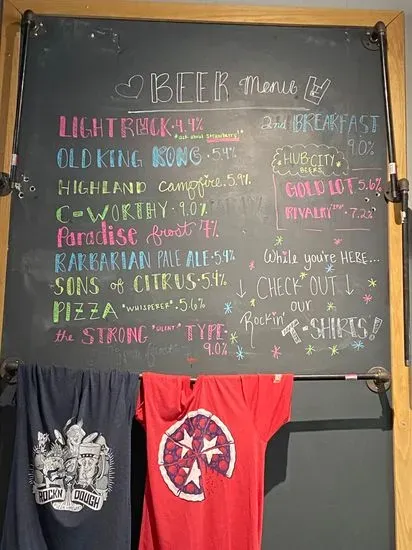 BEER Menu
LIGHT ROCK • 4.4%
*ask about strawberry!*
OLD KING KONG • 5.4%
HIGHLAND campfire • 5.9%
C-WORTHY • 9.0%
Paradise frost 7%
BARBARIAN PALE ALE • 5.4%
SONS of CITRUS • 5.4%
PIZZA "WHISPERER" • 5.6%
the STRONG "SILENT" TYPE
9.0%
2nd BREAKFAST
9.0%
HUB CITY
BEERS
GOLD LOT 5.6%
RIVALRY "IPA" • 7.2%
While you're HERE...
↓ CHECK OUT ↓
our
Rockin'
T-SHIRTS!
ROCK'N DOUGH